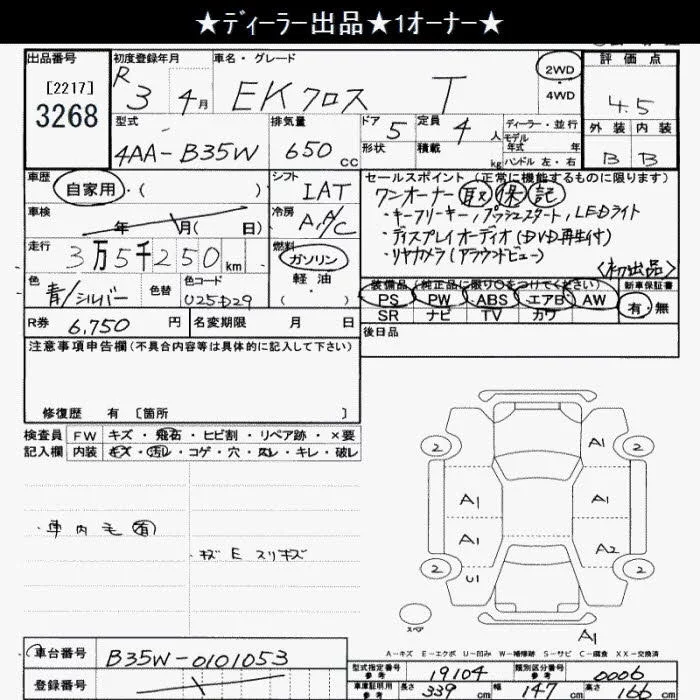 ★ディーラー出品★1オーナー★
出品番号 初度登録年月 車名・グレード 評価点
[2217] R 3 4月 EKクロス T 2WD・4WD 4.5
3268
型式 排気量 ドア 5 定員 4 人 ディーラー・並行 外装 内装
4AA-B35W 650 cc 形状 積載 kg モデル年式 年 ハンドル 左・右 B B
車歴 シフト セールスポイント(正常に機能するものに限ります)
自家用・( ) IAT ワンオーナー 取 保 記
車検 年 月( 日) 冷房 A,A/C ・キーフリーキー,プッシュスタート,LEDライト
走行 燃料 ・ディスプレイオーディオ(DVD再生付)
3万5千250km ガソリン ・リヤカメラ(アラウンドビュー)
色 色替 色コード 軽油・( ) <初出品>
青/シルバー U25D29 装備品(純正品に限り○をつけてください) 新車保証書
PS PW ABS エアB AW 有・無
R券 6,750 円 名変期限 月 日 SR ナビ TV カワ
注意事項申告欄(不具合内容等は具体的に記入して下さい) 後日品
修復歴 有 〔箇所 〕
検査員 FW キズ・飛石・ヒビ割・リペア跡・×要
記入欄 内装 キズ・汚レ・コゲ・穴・スレ・キレ・破レ
2 A1 2
A1 A1
・車内毛有 A1 A2
・キズ E スリキズ
2 U1 2
スペア A1
A-キズ E-エクボ U-凹み W-補修跡 S-サビ C-腐食 XX-交換済
車台番号 B35W-0101053 型式指定番号 参考 19104 類別区分番号 参考 0006
登録番号 車庫証明用 参考 長さ 339 cm 幅 147 cm 高さ 166 cm